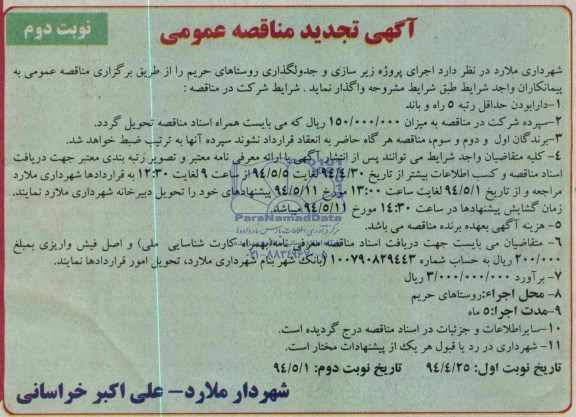 آگهی تجدید مناقصه عمومی
نوبت دوم
شهرداری ملارد در نظر دارد اجرای پروژه زیر سازی و جدولگذاری روستاهای حریم را از طریق برگزاری مناقصه عمومی به
پیمانکاران واجد شرایط طبق شرایط مشروحه واگذار نماید . شرایط شرکت در مناقصه :
۱-دارابودن حداقل رتبه ۵ راه و باند
۲-سپرده شرکت در مناقصه به میزان ۱۵۰/۰۰۰/۰۰۰ ریال که می بایست همراه اسناد مناقصه تحویل گردد.
۳-برندگان اول و دوم و سوم، مناقصه هر گاه حاضر به انعقاد قرارداد نشوند سپرده آنها به ترتیب ضبط خواهد شد.
۴- کلیه متقاضیان واجد شرایط می توانند پس از انتشار آگهی با ارائه معرفی نامه معتبر و تصویر رتبه بندی معتبر جهت دریافت
اسناد مناقصه و کسب اطلاعات بیشتر از تاریخ ۹۴/۴/۳۰ لغایت ۹۴/۵/۵ از ساعت ۹ لغایت ۱۲:۳۰ به قراردادها شهرداری ملارد
مراجعه و از تاریخ ۹۴/۵/۱ لغایت ساعت ۱۳:۰۰ مورخ ۹۴/۵/۱۱ پیشنهادهای خود را تحویل دبیرخانه شهرداری ملارد نمایند.
زمان گشایش پیشنهادها در ساعت ۱۴:۳۰ مورخ ۹۴/۵/۱۱ میباشد.
۵- هزینه آگهی بعهده برنده مناقصه می باشد.
ParaNamadData
۶- متقاضیان می بایست جهت دریافت اسناد مناقصه (معرفی نامه بهمراه کارت شناسایی ملی) و اصل فیش واریزی بمبلغ
۲۰۰/۰۰۰ ریال به حساب شماره ۱۰۰۷۹۰۸۲۹۴۴۳ (بانک شهر بنام شهرداری ملارد، تحویل امور قراردادها نمایند.
۷- برآورد ۳/۰۰۰/۰۰۰/۰۰۰ ریال
۸- محل اجراء:روستاهای حریم
۹-مدت اجرا:۵ ماه
۱۰-سایراطلاعات و جزئیات در اسناد مناقصه درج گردیده است.
۱۱- شهرداری در رد یا قبول هر یک از پیشنهادات مختار است.
تاریخ نوبت اول: ۹۴/۴/۲۵ تاریخ نوبت دوم: ۹۴/۵/۱
شهردار ملارد- علی اکبر خراسانی